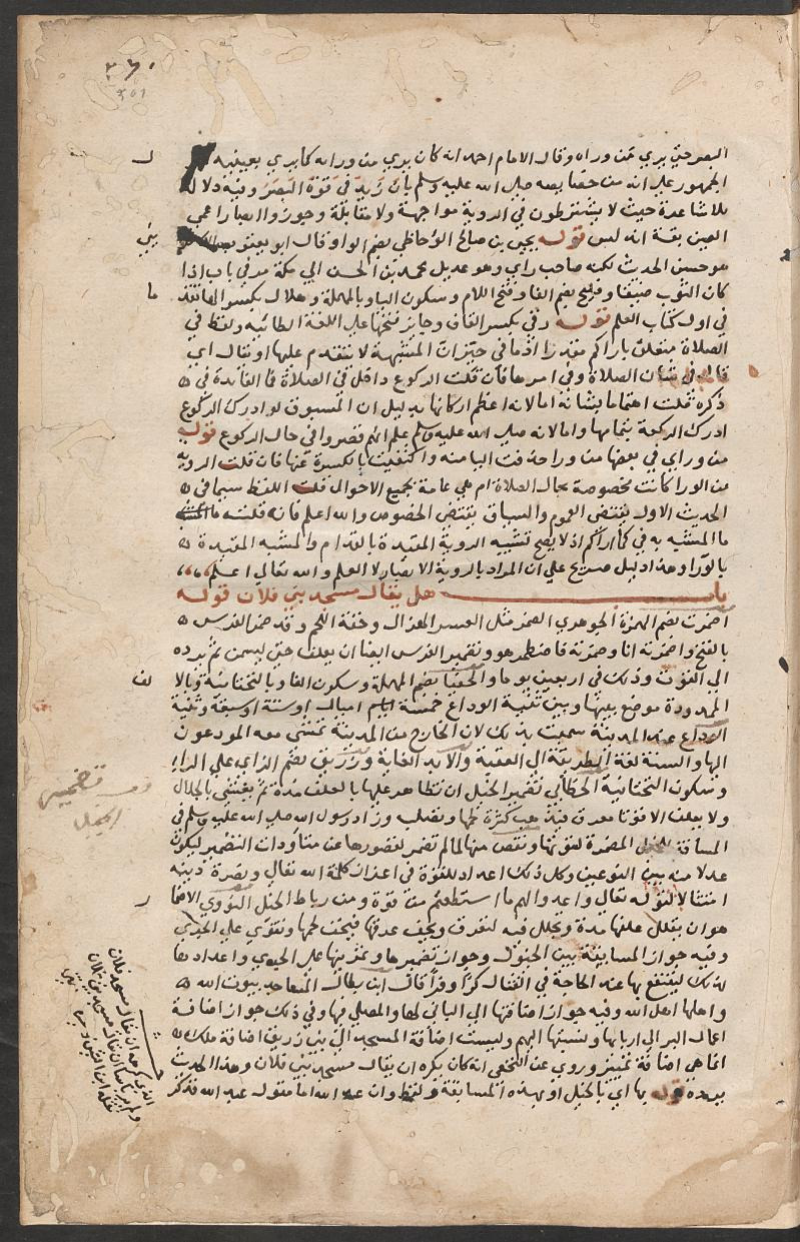 ٣٦٠
٣٥١
البصر حتى يرى من وراه وقال الامام احمد انه كان يرى من ورائه كما يرى بعينيه
الجمهور على انه من خصايصه صلى الله عليه وسلم بان زيد في قوة البصر وفيه دلالة
للاشاعرة حيث لا يشترطون في الروية مواجهة ولا مقابلة وجوزوا ابصار اعمى
الصين بقة اندلس قوله يحيى بن صالح الوحاظي بضم الواو وقال ابو يعقوب
هو حسن الحديث لكنه صاحب راي وهو عديل محمد بن الحسن الى مكة مر في باب اذا
كان الثوب ضيقا وفليح بضم الفا وفتح اللام وسكون اليا وبالمهملة وهلال بكسر الها تقدما
في اول كتاب العلم قوله رقي بكسر القاف وجايز فتحها على اللغة الطائيه ولفظ في
الصلاة متعلق باراكم مقدرا اذ ما في حيز ان المشبهة لا يتقدم عليها او نقال اي
قال في شان الصلاة وفي امرها فان قلت الركوع داخل في الصلاة فما الفائدة في
ذكره قلت اهتماما بشانه اما لانه اعظم اركانها بدليل ان المسبوق لو ادرك الركوع
ادرك الركعة بتمامها واما لانه صلى الله عليه وسلم علم انهم قصروا في حال الركوع قوله
من وراي في بعضها من ورا حذفت اليا منه واكتفيت بالكسرة عنها فان قلت الروية
من الورا كانت مخصوصة بحال الصلاة ام هي عامة بجميع الاحوال قلت اللفظ سيما في
الحديث الاول يقتضي العموم والسياق يقتضي الخصوص والله اعلم فان قلت
ما المشبه به في كما اراكم اذ لا يصح تشبيه الروية المقيدة بالقدام والمشبه المقيدة
بالورا وهذا دليل صريح على ان المراد بالروية الابصار لا العلم والله تعالى اعلم
باب هل يقال مسجد بني فلان قوله
اضمرت بضم الهمزة الجوهري الضمر مثل العسر الهزال وخفة اللحم وقد ضمر الفرس
بالفتح واضمرته انا وضمرته فاضطمر هو وتضمير الفرس ايضا ان يعلف حتى يسمن ثم يرده
الى القوت وذلك في اربعين يوما والحفيا بضم المهملة وسكون الفا وبالتحتانية وبالا
لف الممدودة موضع بينها وبين ثنية الوداع خمسة اميال او ستة او سبعة وثنية
الوداع عند المدينة سميت بذلك لان الخارج من المدينة تمشي معه المودعون
اليها والثنية لغة الطريقة الى العقبة والامد الغاية وزريق بضم الزاي على الراء
وسكون التحتانية الخطابي تضمير الخيل ان تظاهر عليها بالعلف مدة ثم تغشي بالجلال
ولا يعلف الا قوتا بعرق فيذهب كثرة لحمها وتصلب وزاد رسول الله صلى الله عليه وسلم في
المسافة للخيل المضمرة لقوتها ونقص منها لما لم تضمر لقصورها عن شاو ذات التضمير ليكون
عدلا منه بين النوعين وكل ذلك اعداد للقوة في اعزاز كلمة الله تعالى ونصرة دينه
امتثالا لقوله تعالى واعدوا لهم ما استطعتم من قوة ومن رباط الخيل النووي الاضما
ر هو ان يقلل علفها مدة وتجلل فيه لتعرق ويجف عرقها فيخف لحمها وتقوى على الجري
وفيه جواز المسابقة بين الخيول وجواز تضميرها وتمرينها على الجري واعدادها
لذلك لينتفع بها عند الحاجة في القتال كرا وفرا قال ابن بطال المساجد بيوت الله
واهلها اهل الله وفيه جواز اضافتها الى الباني لها والمصلي فيها وفي ذلك جواز اضافة
اعمال البر الى اربابها ونسبتها اليهم وليست اضافة المسجد الى بني زريق اضافة ملك
انما هي اضافة تمييز وروي عن النخعي انه كان يكره ان يقال مسجد بني فلان وهذا الحديث
يرده قوله بها اي بالخيل او بهذه المسابقة ولفظ وان عبد الله اما مقول عبد الله فذكر
تضمير
الخيل